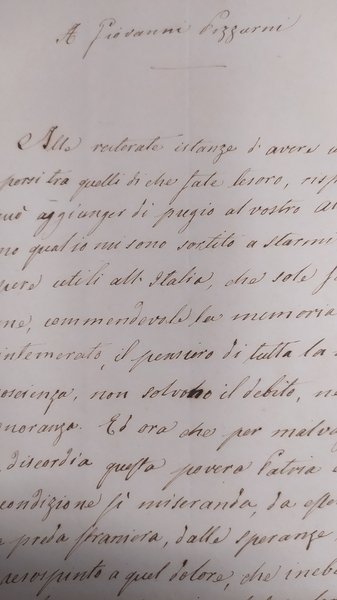 A Giovanni Pizzorni
Alle reiterate istanze d'avere
porsi tra quelli di che fate tesoro, risp
può aggiunger di pregio al vostro
no qual io mi sono sortito a starmi
pere utili all'Italia, che sole f
me, commendevole la memoria
intemerato, il pensiero di tutta la
oscienza, non solvono il debito, ne
noranza. Ed ora che per malva
discordia questa povera Patria
condizione sì miseranda, da esse
preda straniera, dalle speranze
resospinto a quel dolore, che ineb